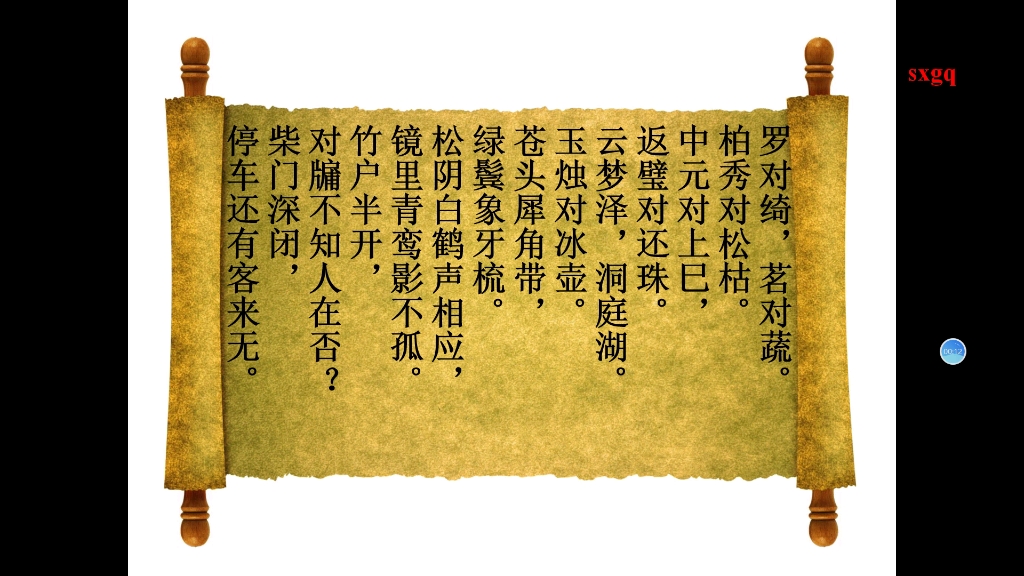 罗对绮，茗对蔬。
柏秀对松枯。
中元对上巳，
返璧对还珠。
云梦泽，洞庭湖。
玉烛对冰壶。
苍头犀角带，
绿鬓象牙梳。
松阴白鹤声相应，
镜里青鸾影不孤。
竹户半开，
对牖不知人在否？
柴门深闭，
停车还有客来无。
sxgq
00:12